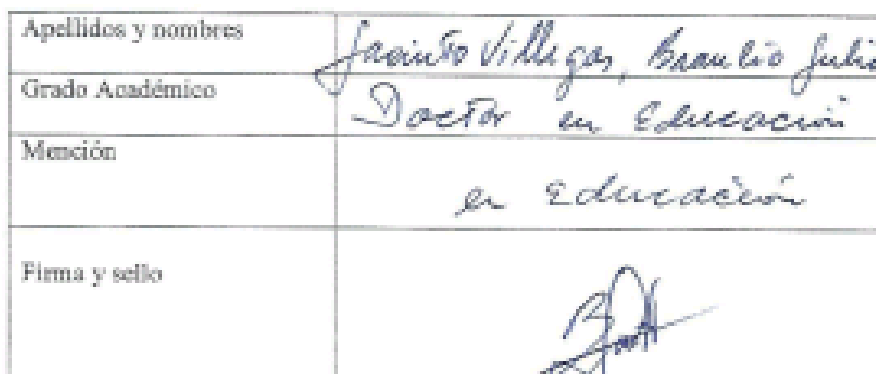 Apellidos y nombres
Jacinto Villegas, Braulio Julio
Grado Académico
Doctor en Educación
Mención
en Educación
Firma y sello